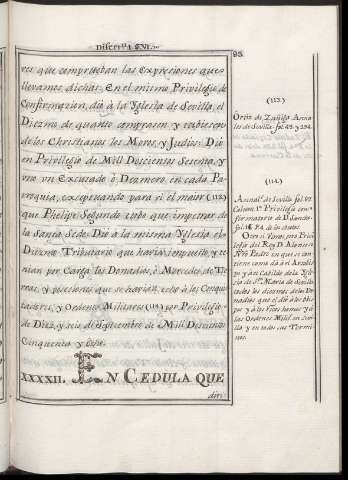 Discerº. LXVI.
93
res que comprueban las Expresiones que
llevamos dichas: En el mismo Privilegio de
Confirmazion, dió à la Yglesia de Sevilla, el
Diezmo de quanto comprasen y tubiesen
de los Christianos los Moros, y Judios: Dió
en Privilegio de Mill Doscientos Sesenta, y
uno un Excusado ò Dezmero, en cada Pa-
rroquia, exceptuando para sí el maior (112)
que Phelipe Segundo tubo que impetrar de
la Santa Sede: Dió à la misma Yglesia el
Diezmo Tributario que havia impuesto, y te-
nian por Carga los Donadios, ò Mercedes de Tie-
rras, y posesiones, que se havian echo à los Conqui-
tadores, y Ordenes Militares (114) por Privilegio
de Diez, y seis de Septiembre de Mill Doscientos
Cinquenta y
XXXXII. EN CEDULA QUE
diri
(113)
Ortiz de Zuñiga Anna-
les de Sevilla fol. 49. y 294.
(114)
Annal.s de Sevilla fol.
Colum. 1ª. Privilegio con-
firmatorio de D.
fol. P.A. de los autos.
Otro si Vimos por Privi-
legio del Rey D. Alonso
Nro Padre en que se con-
tiene como dà à el Arzobis-
po y à el Cabildo de la Ygle-
sia de Sta. Maria de Sevilla
todos los diezmos de los Do-
nadios que el dió à los Obis-
pos y à los Ricos homes y à
las Ordenes Milit. en Sevi-
lla y en todos sus Termi-
nos.